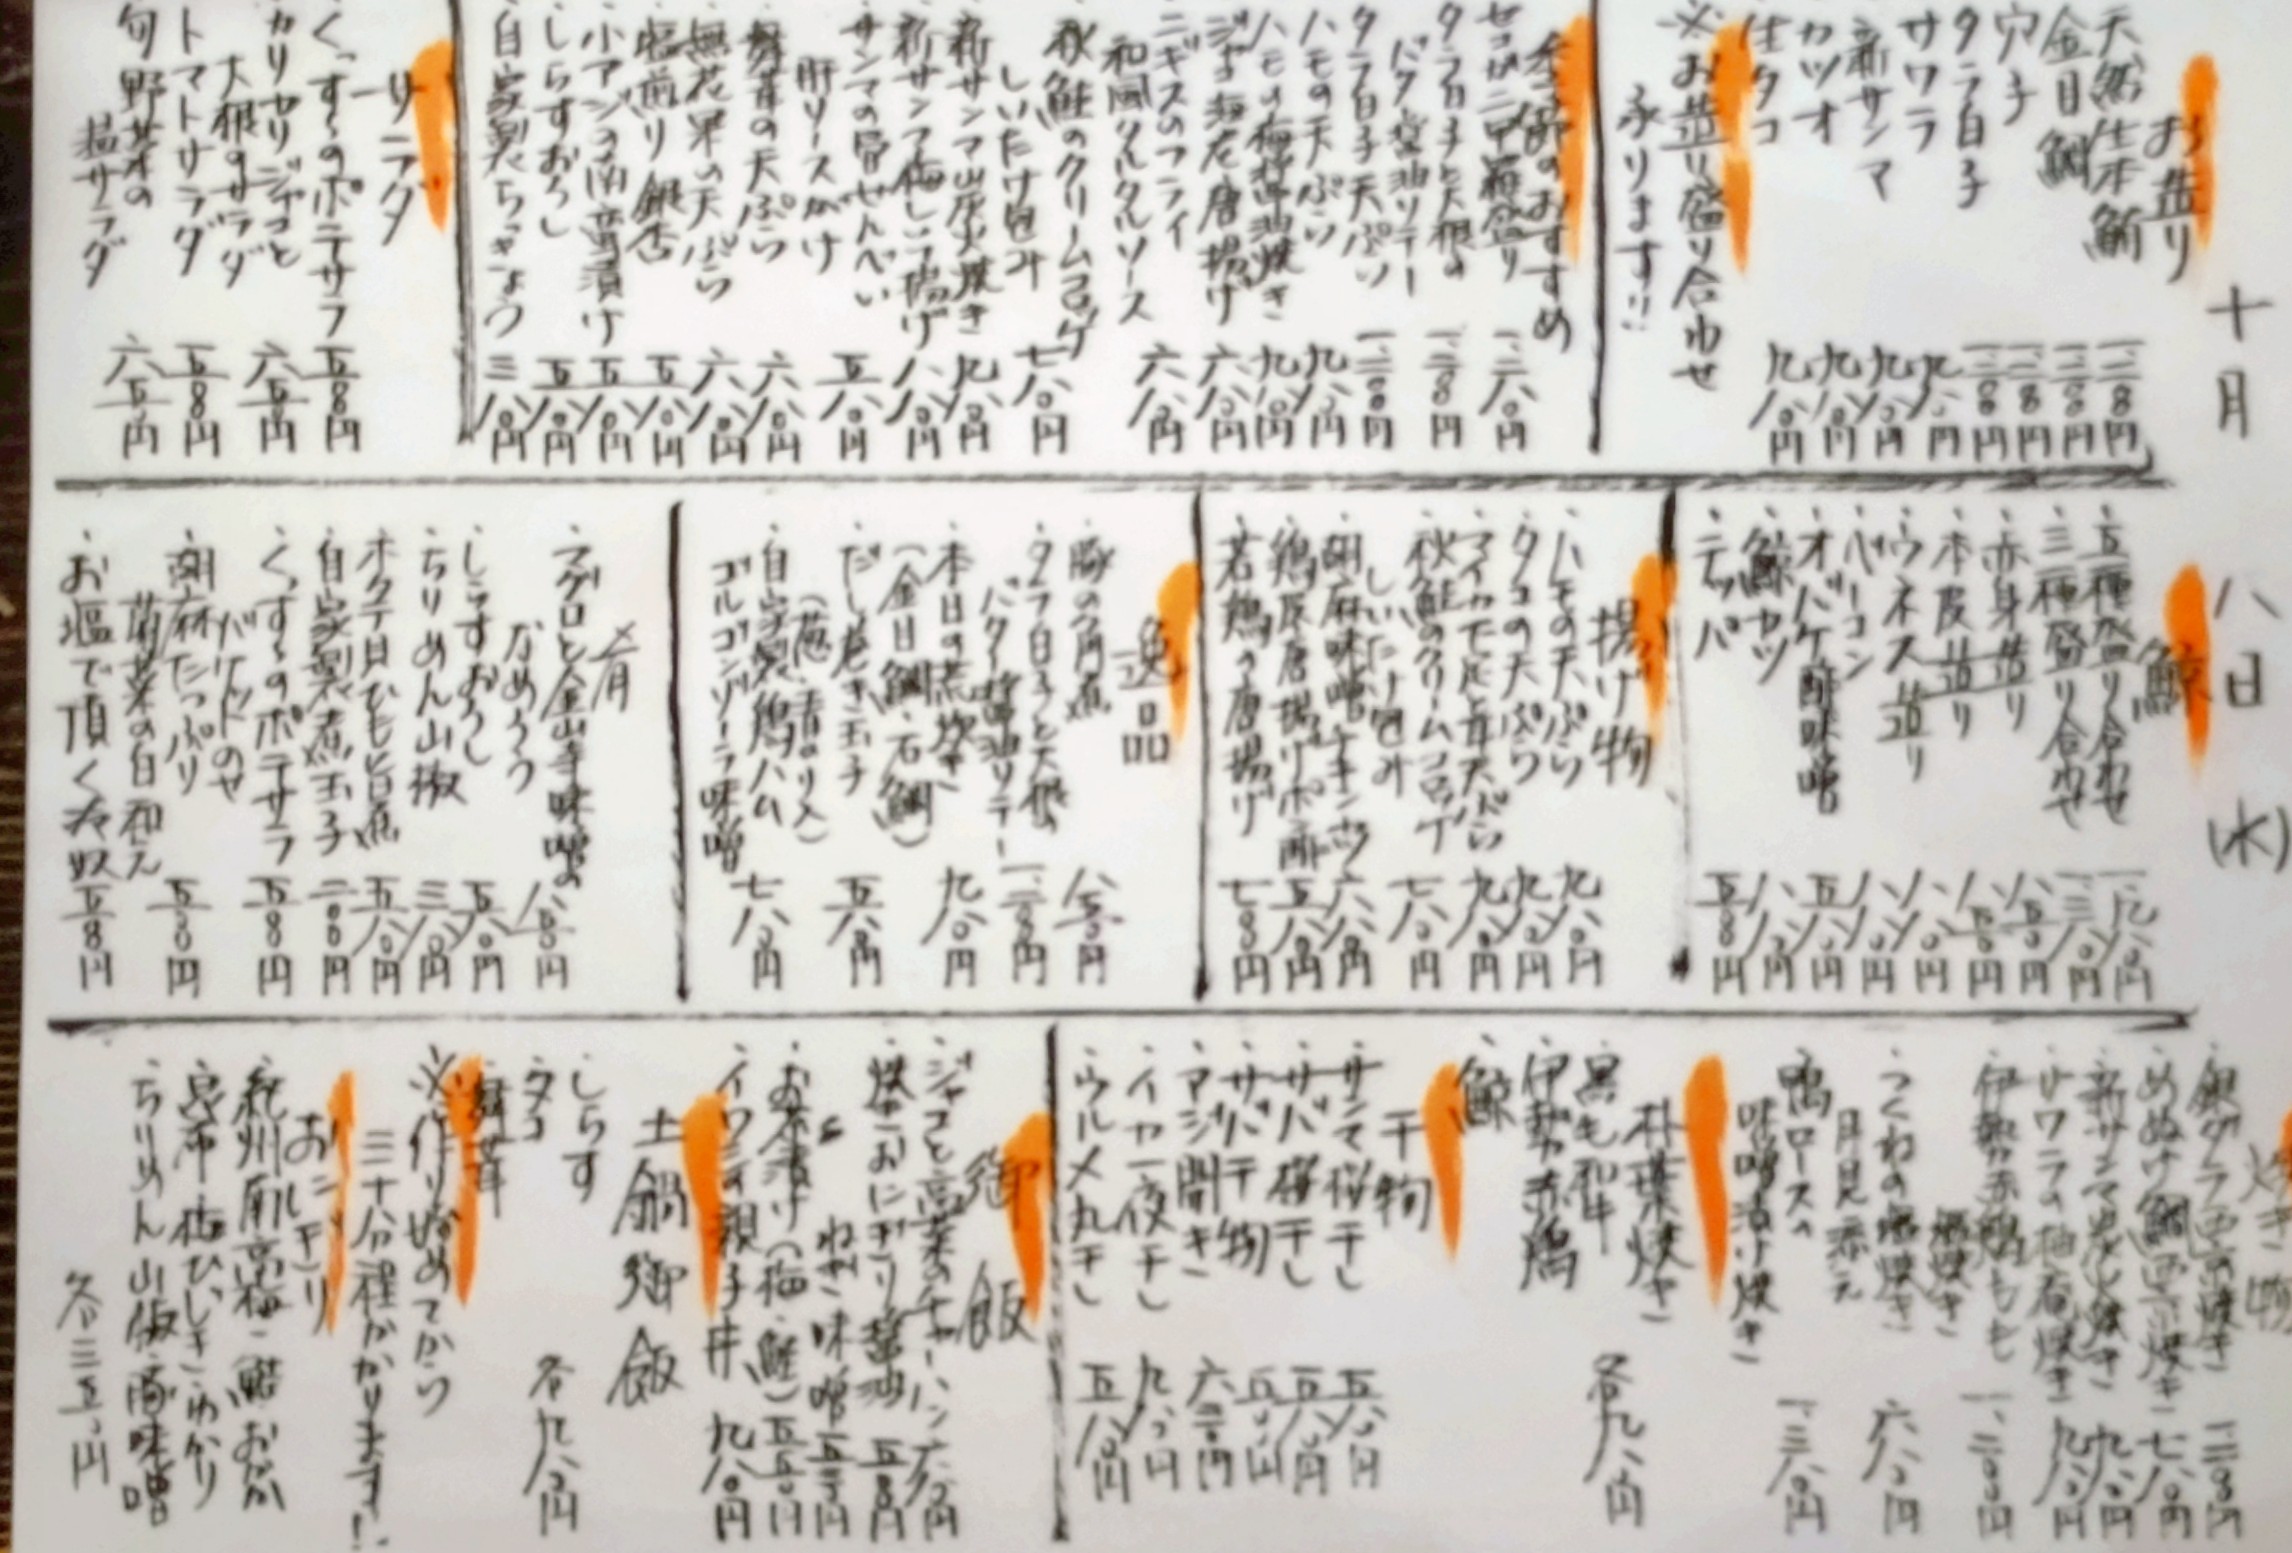 十月
八日
(水)
お造り
天然生本鮪 一、二〇〇円
金目鯛 一、二〇〇円
穴子
タラ白子
サワラ 九八〇円
新サンマ 九八〇円
カツオ 九八〇円
生タコ 九八〇円
※お造り盛り合わせ
承ります!!
季節のおすすめ
せこがに甲羅盛り
タラ白子と大根の
バター醤油ソテー
タラ白子天ぷら
ハモの天ぷら 九八〇円
ハモの梅醤油焼き 九八〇円
ジャコ海老唐揚げ 六八〇円
ニギスのフライ
和風タルタルソース 六八〇円
秋鮭のクリームコロッケ
しいたけ包み 七八〇円
新サンマ炭火焼き 九八〇円
新サンマ梅しそ揚げ 八八〇円
サンマの骨せんべい
肝ソースがけ 五八〇円
舞茸の天ぷら 六八〇円
無花果の天ぷら 六八〇円
塩煎り銀杏 五八〇円
小アジの南蛮漬け 五八〇円
しらすおろし 五八〇円
自家製らっきょう 三八〇円
サラダ
くっすーのポテサラ 五〇〇円
カリカリジャコと
大根のサラダ 六五〇円
トマトサラダ 五〇〇円
旬野菜の
塩サラダ 六五〇円
鯨
五種盛り合わせ
三種盛り合わせ
赤身造り
本皮造り
ウネス造り
ベーコン
オバケ酢味噌
鯨カツ
テッパ 五〇〇円
揚げ物
ハモの天ぷら 九八〇円
タコの天ぷら 九八〇円
マイカゲソと茸天ぷら 九八〇円
秋鮭のクリームコロッケ
しいたけ包み 七八〇円
胡麻味噌チキンカツ 六八〇円
鶏皮唐揚げポン酢 五八〇円
若鶏の唐揚げ 七〇〇円
逸品
豚の角煮
タラ白子と大根の
バター醤油ソテー
本日の煮炊き
(金目鯛・石鯛) 九八〇円
だし巻き玉子
(葱・青のり入) 五八〇円
自家製鶏ハム
ゴルゴンゾーラ味噌 七八〇円
〆肴
マグロと金山寺味噌の
なめろう
しらすおろし 五八〇円
ちりめん山椒 三八〇円
ホタテ貝ひも旨煮 五八〇円
自家製煮玉子 二〇〇円
くっすーのポテサラ
バケットのせ 五〇〇円
胡麻たっぷり
菊菜の白和え
お塩で頂く冷奴 五〇〇円
焼き物
銀ダラ西京焼き
めぬけ鯛西京焼き 七八〇円
新サンマ炭火焼き 九八〇円
サワラの柚庵焼き 九八〇円
伊勢赤鶏もも
塩焼き
つくねの塩焼き
月見添え 六八〇円
鴨ロースの
味噌漬け焼き 一、三八〇円
朴葉焼き
黒毛和牛
伊勢赤鶏
鯨
各九八〇円
干物
サンマ桜干し 五八〇円
サバ桜干し 五八〇円
サバ干物
アジ開き
イカ一夜干し 九八〇円
ウルメ丸干し 五八〇円
御飯
ジャコと高菜のチャーハン 六八〇円
焼きおにぎり醤油
〃 ねぎ味噌
お茶漬け(梅・鮭) 五五〇円
イワシ親子丼 九八〇円
土鍋御飯
しらす
タコ
舞茸
各九八〇円
※作り始めてから
三十分程かかります!!
おにぎり
紀州南高梅・鮭・おかか
昆布・梅ひじき・わかり
ちりめん山椒・豚味噌
各三五〇円